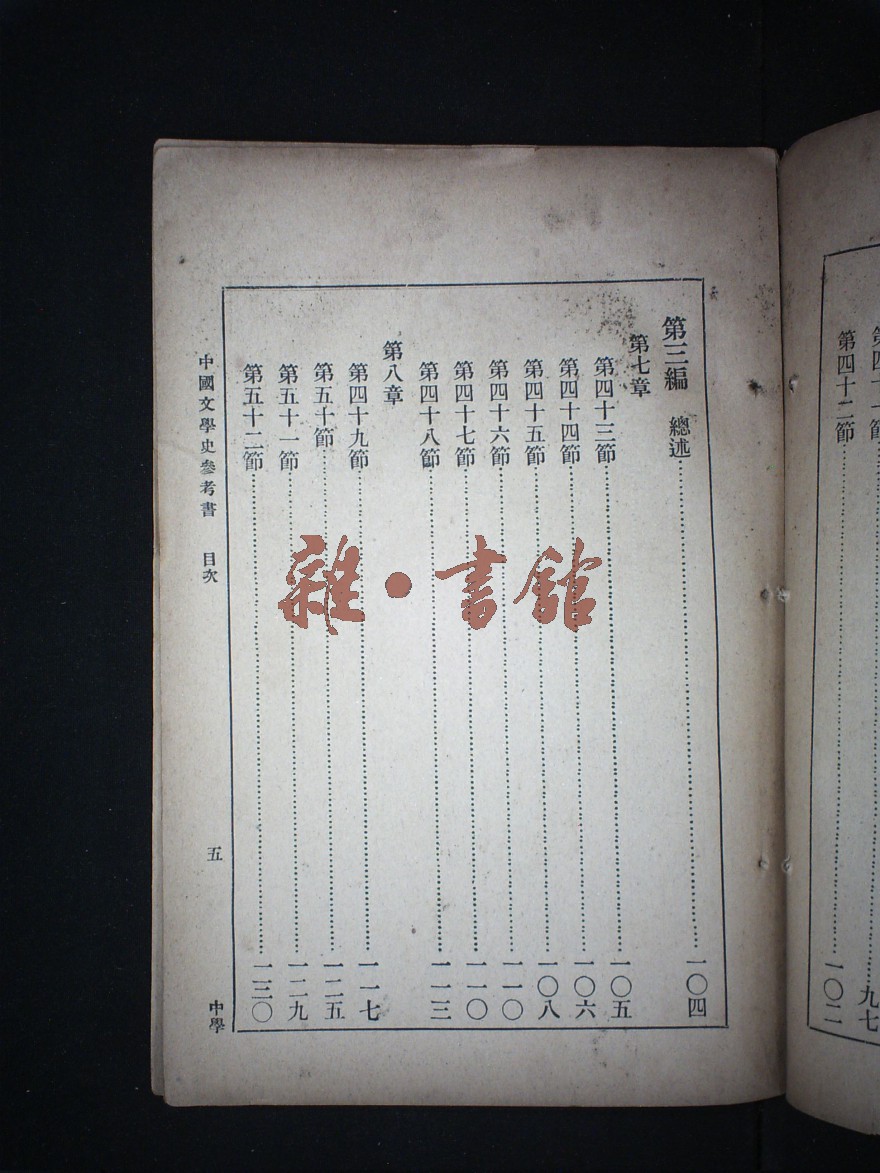 第四十一節……九七
第四十二節……一〇二
第三編 總述……一〇四
第七章
第四十三節……一〇五
第四十四節……一〇六
第四十五節……一〇八
第四十六節……一一〇
第四十七節……一一〇
第四十八節……一一三
第八章
第四十九節……一一七
第五十節……一二五
第五十一節……一二九
第五十二節……一三〇
中國文學史參考書 目次 五 中學
雜·書館